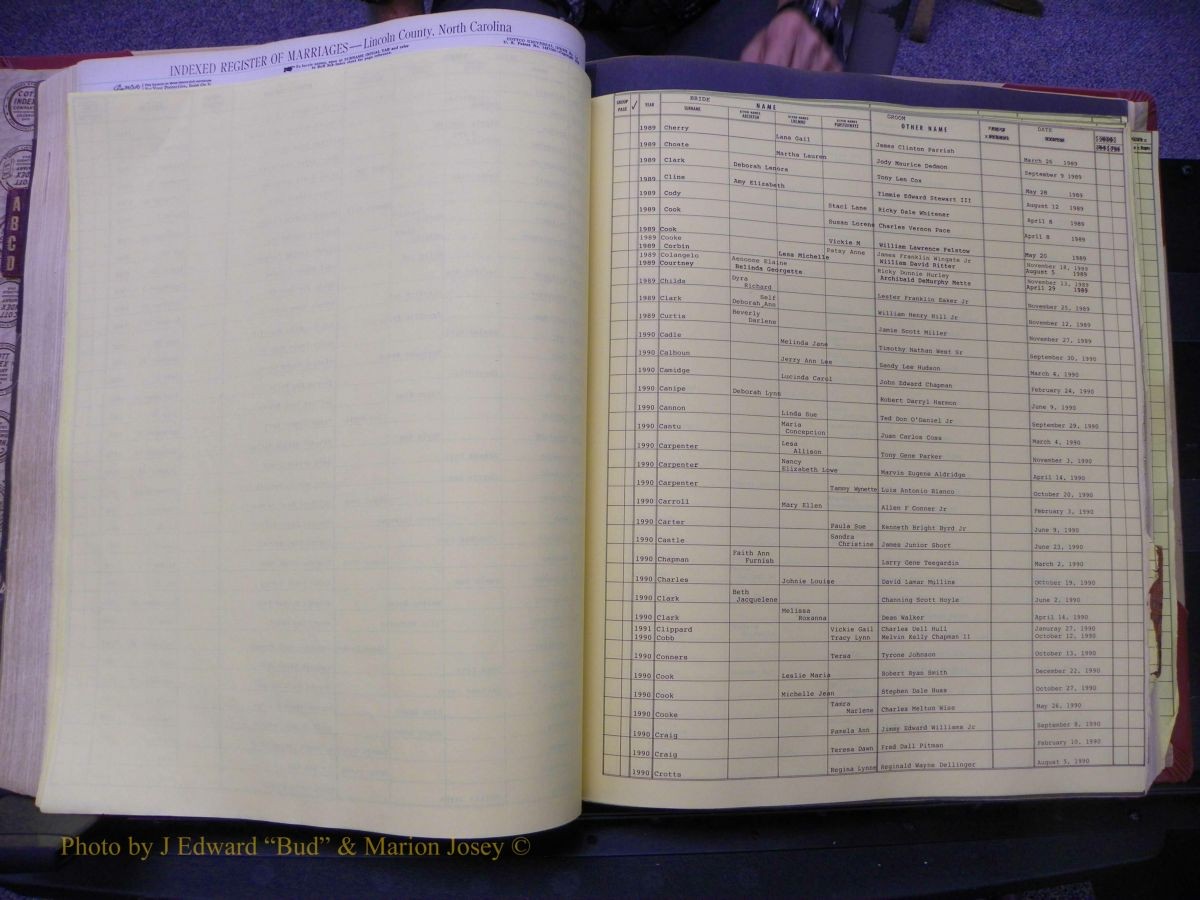 INDEXED REGISTER OF MARRIAGES—Lincoln County, North Carolina
A B C D
BRIDE GROOM DATE
YEAR SURNAME NAME OTHER NAME
1989 Cherry Lana Gail James Clinton Parrish March 25 1989
1989 Choate Martha Lauren Jody Maurice Dedmon September 9 1989
1989 Clark Deborah Lenora Tony Len Cox May 28 1989
1989 Cline Amy Elizabeth Timmie Edward Stewart III August 12 1989
1989 Cody Staci Lane Ricky Dale Whitener April 8 1989
1989 Cook Susan Lorene Charles Vernon Pace April 8 1989
1989 Cook Vickie M William Lawrence Felstow May 20 1989
1989 Cooke Patsy Anne James Franklin Wingate Jr November 18, 1989
1989 Corbin Lesa Michelle William David Ritter August 5 1989
1989 Colangelo Aenonne Elaine Ricky Donnie Hurley November 13, 1989
1989 Courtney Belinda Georgette Archibald DeMurphy Metts April 29 1989
1989 Childs Dyra Richard Lester Franklin Eaker Jr November 25, 1989
1989 Clark Self Deborah Ann William Henry Hill Jr November 12, 1989
1989 Curtis Beverly Darlene Jamie Scott Miller November 27, 1989
1990 Cadle Melinda Jane Timothy Nathan West Sr September 30, 1990
1990 Calhoun Jerry Ann Lee Sandy Lee Hudson March 4, 1990
1990 Camidge Lucinda Carol John Edward Chapman February 24, 1990
1990 Canipe Deborah Lynn Robert Darryl Harmon June 9, 1990
1990 Cannon Linda Sue Ted Don O'Daniel Jr September 29, 1990
1990 Cantu Maria Concepcion Juan Carlos Coss March 4, 1990
1990 Carpenter Lesa Allison Tony Gene Parker November 3, 1990
1990 Carpenter Nancy Elizabeth Lowe Marvin Eugene Aldridge April 14, 1990
1990 Carpenter Tammy Wynette Luis Antonio Blanco October 20, 1990
1990 Carroll Mary Ellen Allen F Conner Jr February 3, 1990
1990 Carter Paula Sue Kenneth Bright Byrd Jr June 9, 1990
1990 Castle Sandra Christine James Junior Short June 23, 1990
1990 Chapman Faith Ann Furnish Larry Gene Teegardin March 2, 1990
1990 Charles Johnie Louise David Lamar Mullins October 19, 1990
1990 Clark Beth Jacquelene Channing Scott Hoyle June 2, 1990
1990 Clark Melissa Roxanna Dean Walker April 14, 1990
1991 Clippard Vickie Gail Charles Uell Hull Januray 27, 1990
1990 Cobb Tracy Lynn Melvin Kelly Chapman II October 12, 1990
1990 Conners Tersa Tyrone Johnson October 13, 1990
1990 Cook Leslie Maria Robert Ryan Smith December 22, 1990
1990 Cook Michelle Jean Stephen Dale Huss October 27, 1990
1990 Cooke Tamra Marlene Charles Melton Wise May 26, 1990
1990 Craig Pamela Ann Jimmy Edward Williams Jr September 8, 1990
1990 Craig Teresa Dawn Fred Dall Pitman February 10, 1990
1990 Crotts Regina Lynne Reginald Wayne Dellinger August 5, 1990
Photo by J Edward “Bud” & Marion Josey ©